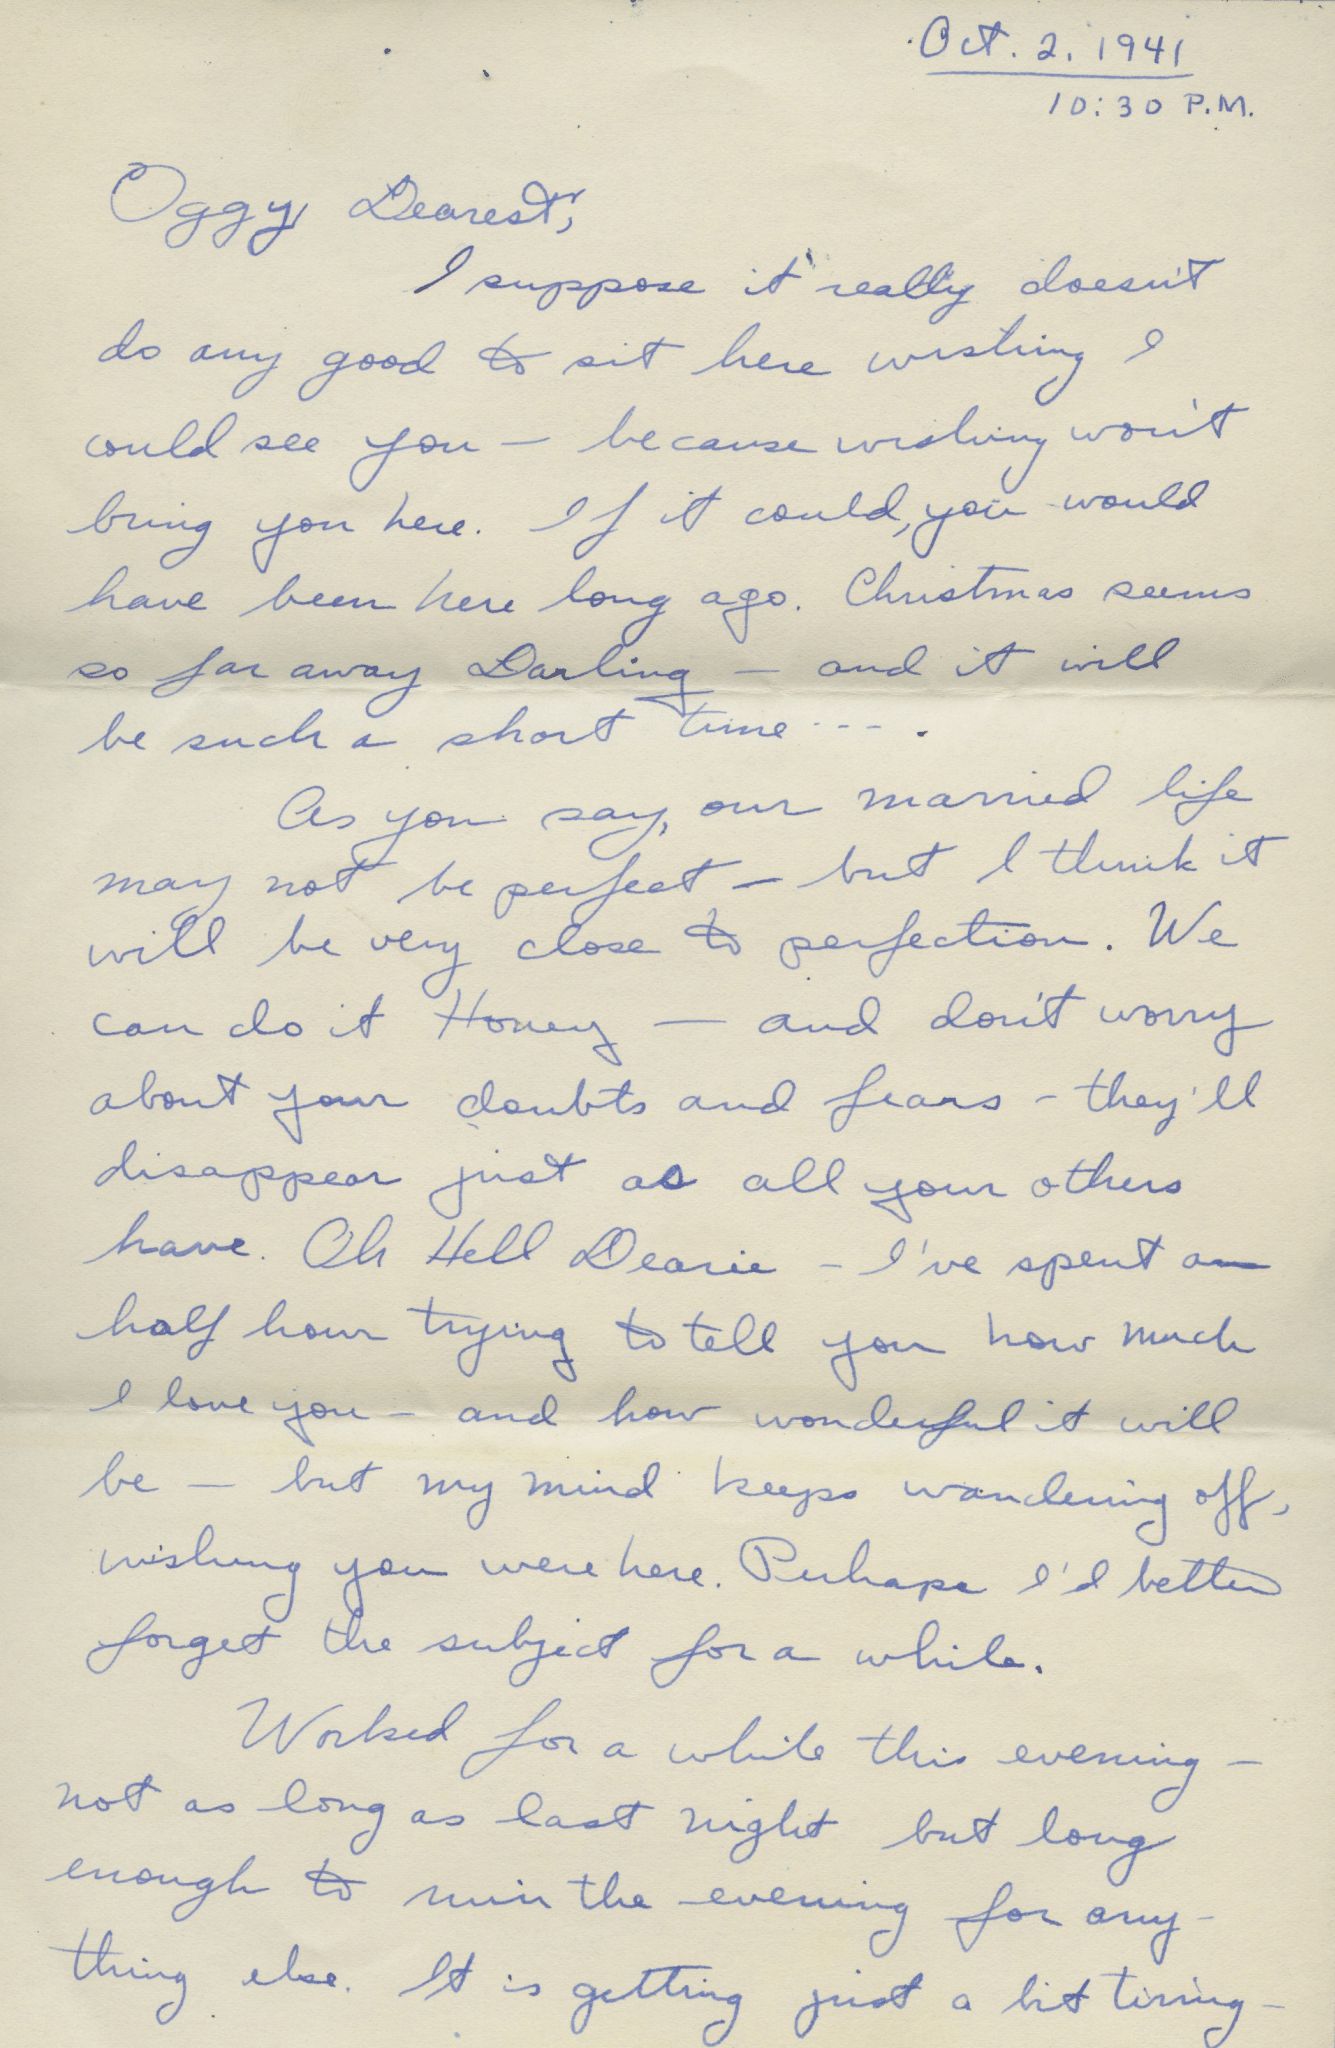 Oct. 2, 1941
10:30 P.M.
Oggy Dearest,
I suppose it really doesn't
do any good to sit here wishing I
could see you — because wishing won't
bring you here. If it could, you would
have been here long ago. Christmas seems
so far away Darling — and it will
be such a short time ---.
As you say, our married life
may not be perfect — but I think it
will be very close to perfection. We
can do it Honey — and don't worry
about your doubts and fears - they'll
disappear just as all your others
have. Oh Hell Dearie - I've spent a
half hour trying to tell you how much
I love you - and how wonderful it will
be — but my mind keeps wandering off,
wishing you were here. Perhaps I'd better
forget the subject for a while.
Worked for a while this evening -
not as long as last night but long
enough to ruin the evening for any-
thing else. It is getting just a bit tiring -